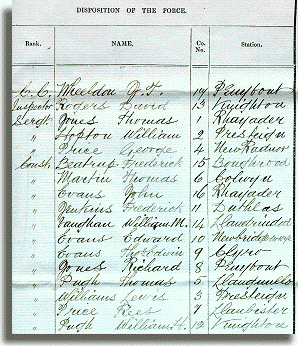 DISPOSITION OF THE FORCE.
Rank. NAME. Co. No. Station.
C.C. Wheeldon 19 Penybont
Inspector Rogers David 13 Knighton
Sergt Jones Thomas 1 Rhayader
" Hopton William 2 Presteign
" Price George 4 New Radnor
Const. Beatrup Frederick 15 Boughrood
" Martin Thomas 6 Colwyn
" Evans John 16 Rhayader
" Jenkins Frederick 11
" Vaughan William M. 14 Llandrindod
" Evans Edward 10
" Evans 9 Clyro
" Jones Richard 8 Penybont
" Pugh Thomas 5
" Williams Lewis 3 Presteign
" Price Rees 7 Llanbister
" Pugh William H. 12 Knighton